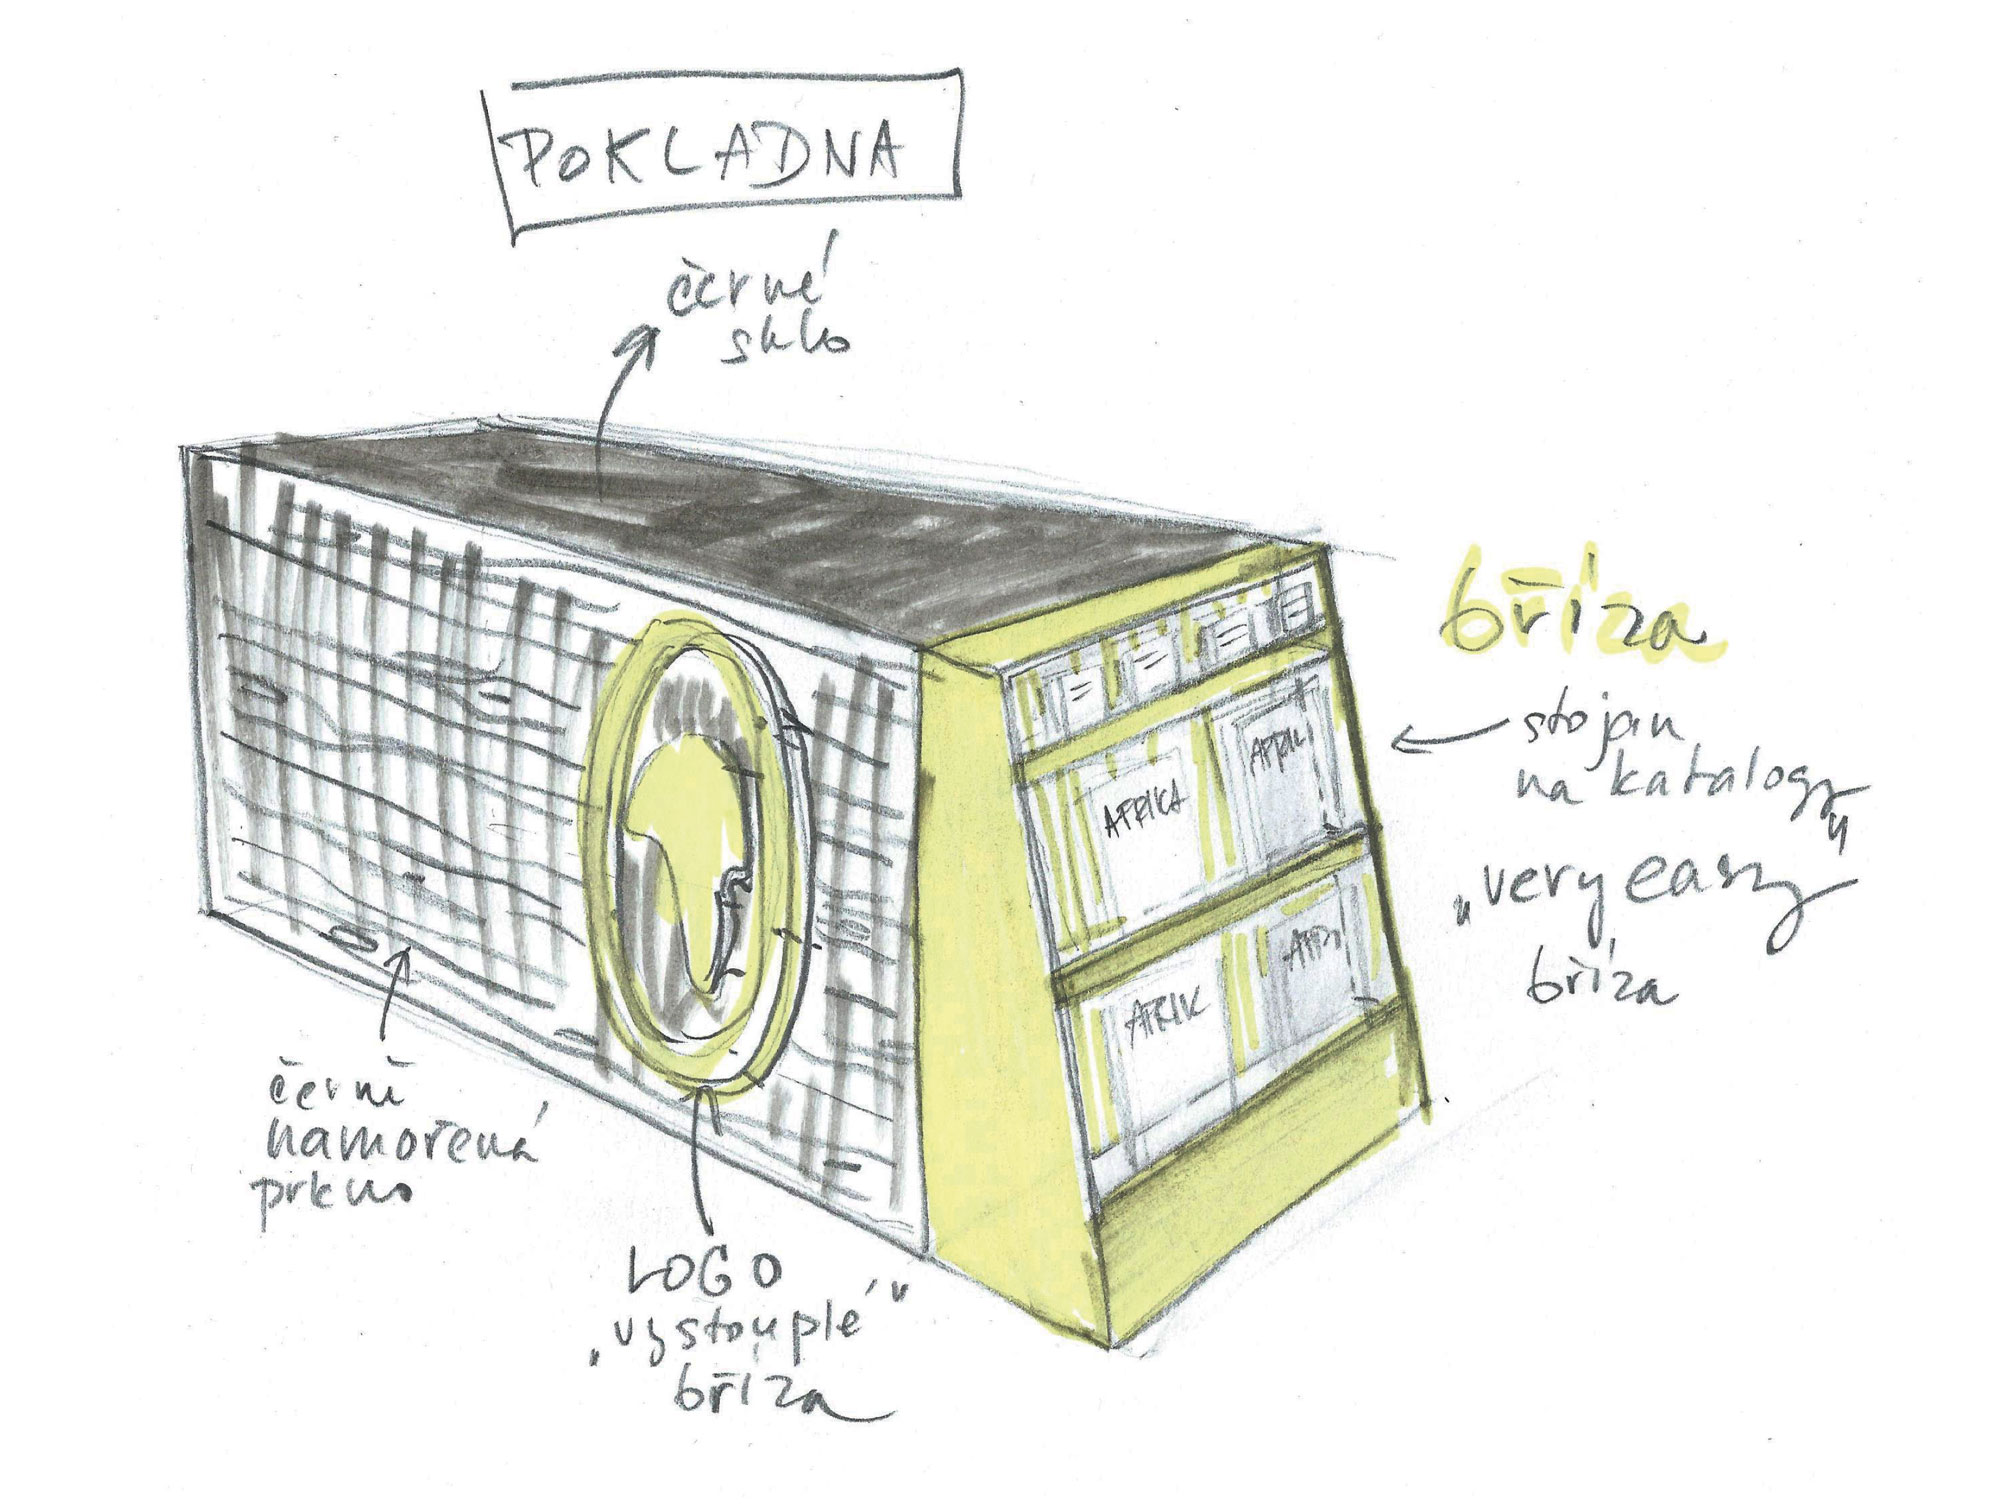 POKLADNA
černé
sklo
bříza
stojan
na katalogy
„very easy“
bříza
AFRIKA
AFRI
AFRIK
AFRI
černě
namořená
prkna
LOGO
„vystouplé“
bříza